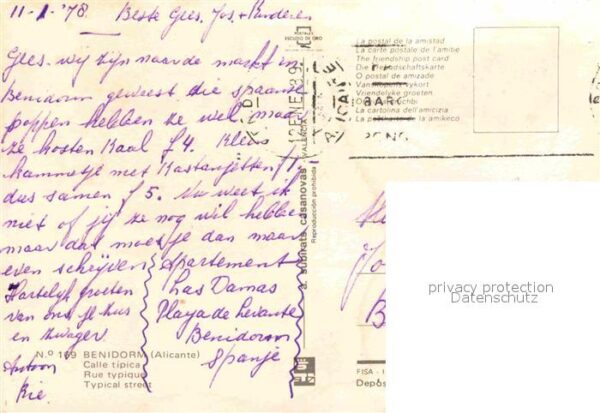 11-1-'78 Beste Gees, Jos, + Kinderen
Gees. wij zijn naar de markt in
Benidorm geweest die spaanse
poppen hebben ze wel maar
ze kosten Kaal f 4. Klein
hammetje met Kastanjetten f 1,
dus samen f 5. Nu weet ik
niet of jij ze nog wil hebben
maar dat moet je dan maar
even schrijven
Hartelijk groeten
van ons je zus
en zwager
Antoon
Rie.
Apartement
Las Damas
Playa de Levante
Benidorm
Spanje
N.º 169 BENIDORM (Alicante)
Calle típica
Rue typique
Typical street
POSTALES
ESCUDO DE ORO
a. subirats casanovas
VALENCIA
Reproducción prohibida
La postal de la amistad
La carte postale de l'amitié
The friendship post card
Die Freundschaftskarte
O postal de amizade
Vänskapens vykort
Vriendelijke groeten
La cartolina dell'amicizia
BARC
privacy protection
Datenschutz
FISA - I
Depós